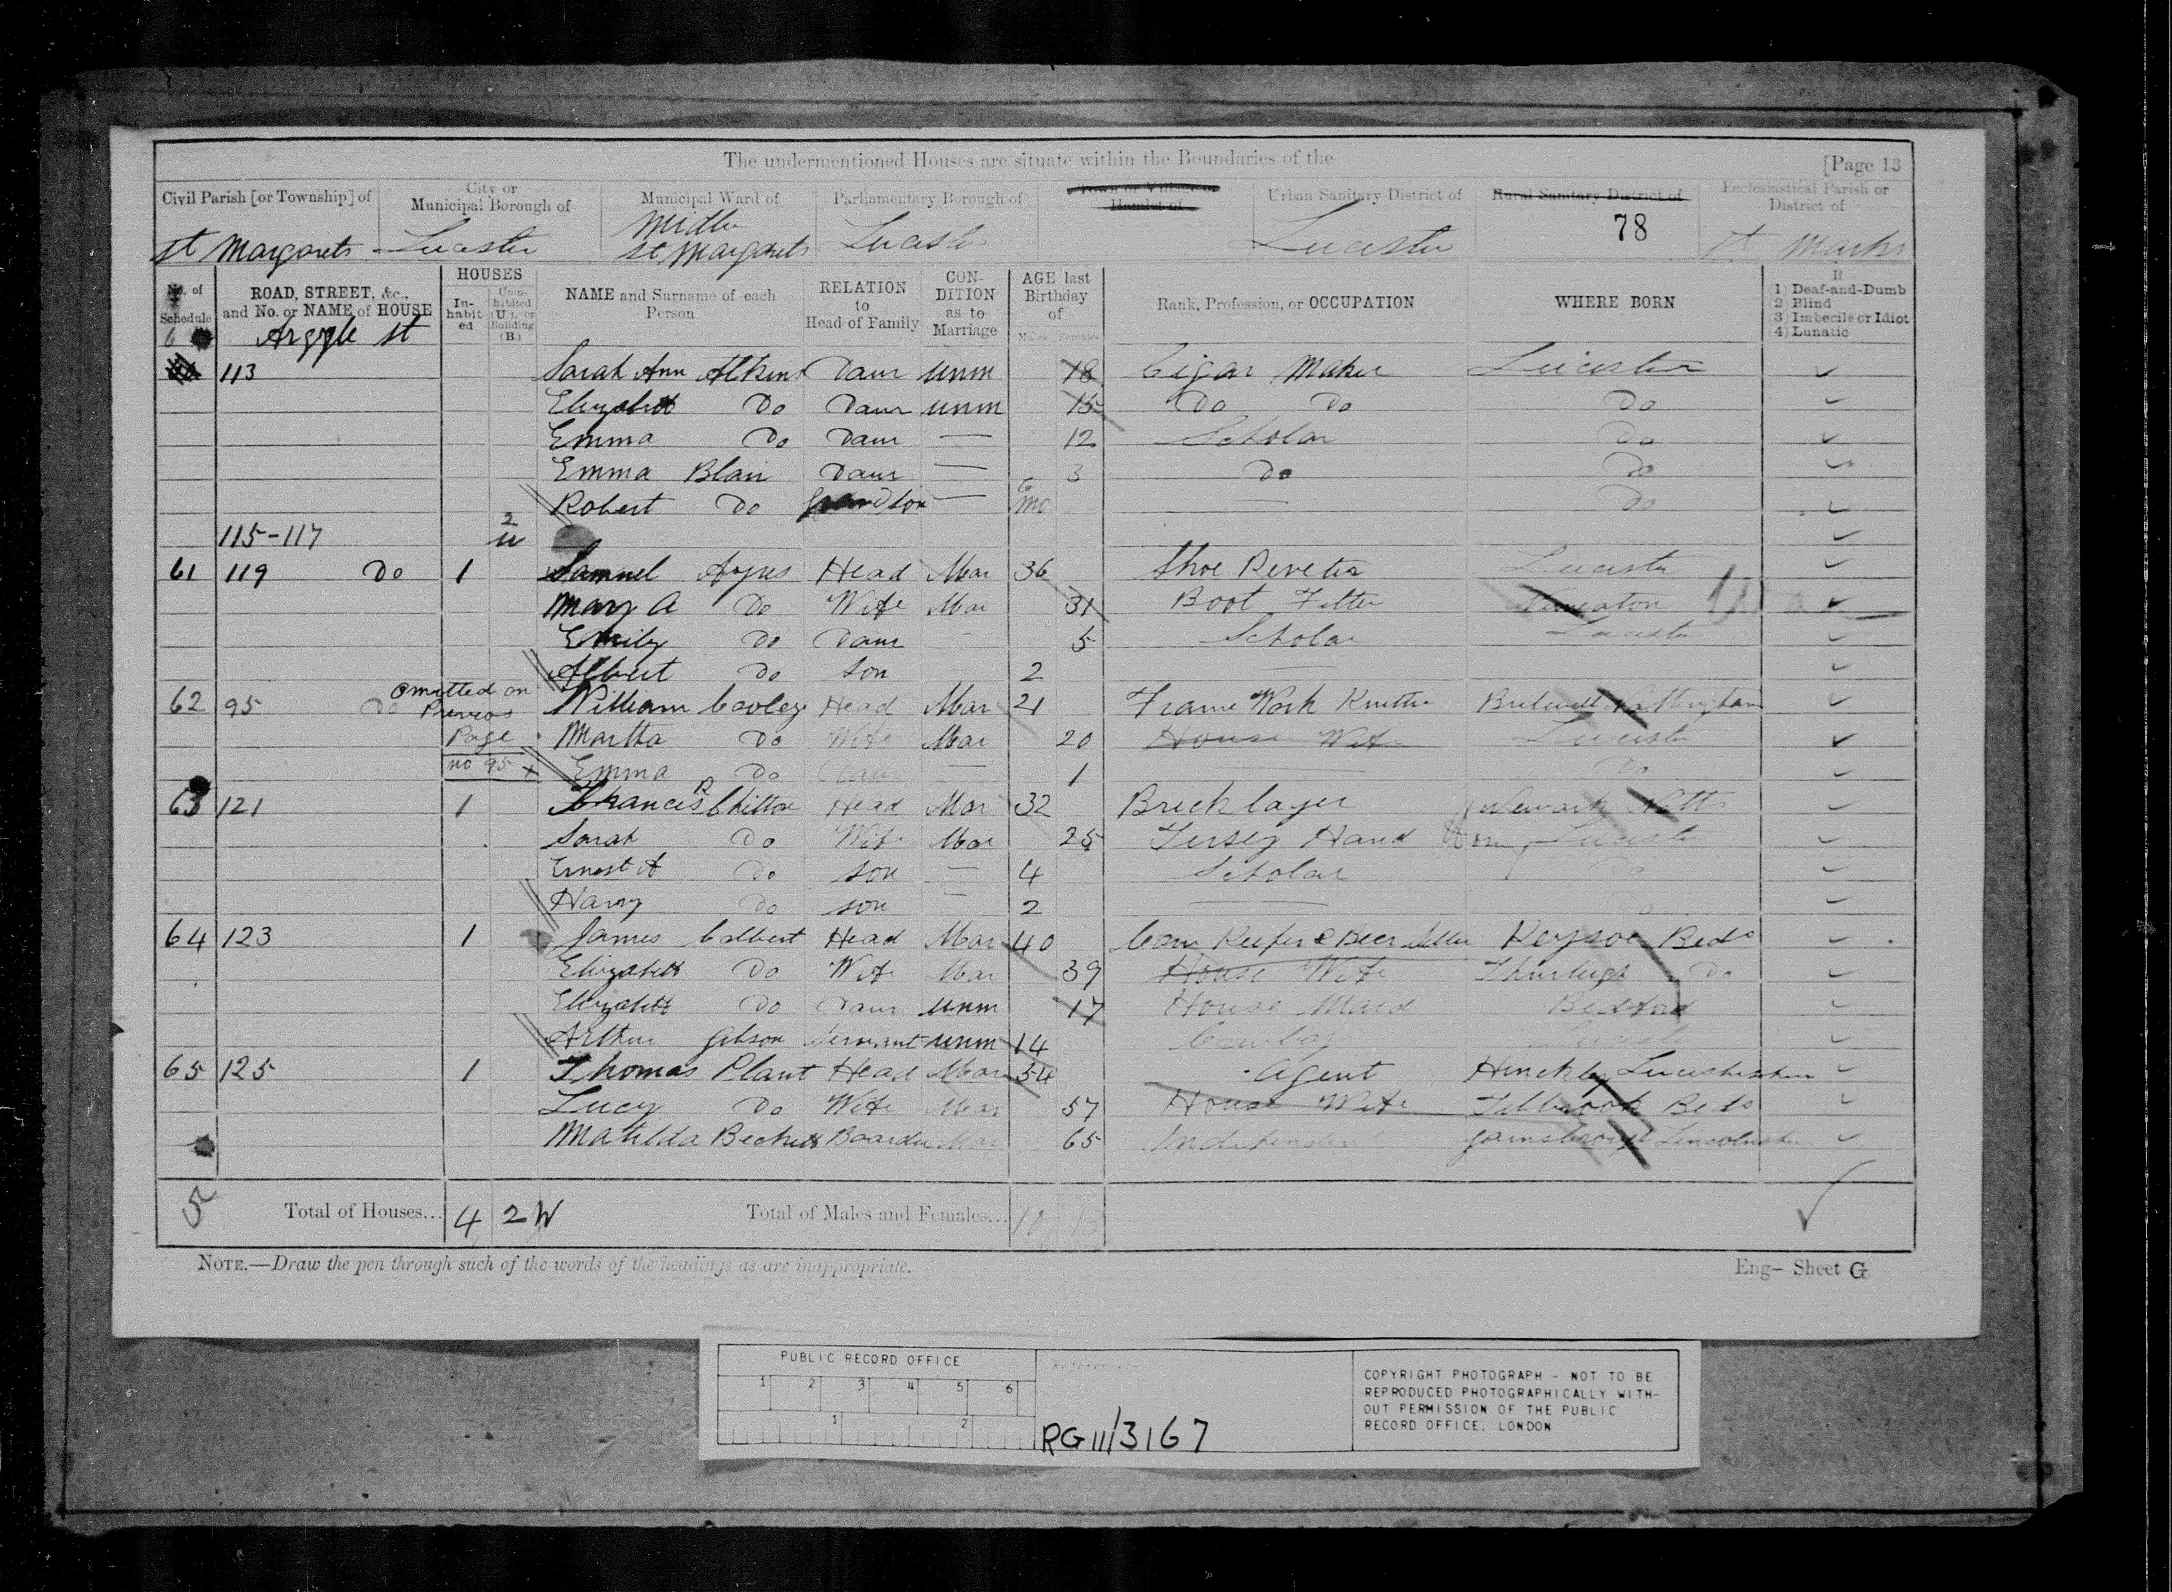 The undermentioned Houses are situate within the Boundaries of the [Page 13
Civil Parish [or Township] of City or Municipal Borough of Municipal Ward of Parliamentary Borough of Town or Village or Hamlet of Urban Sanitary District of Rural Sanitary District of Ecclesiastical Parish or District of
St Margarets Leicester Middle St Margarets Leicester Leicester 78 St Marks
No. of Schedule ROAD, STREET, &c., and No. or NAME of HOUSE HOUSES In-habited Unin-habited (U.), or Building (B.) NAME and Surname of each Person RELATION to Head of Family CON-DITION as to Marriage AGE last Birthday of Males Females Rank, Profession, or OCCUPATION WHERE BORN If 1) Deaf-and-Dumb 2) Blind 3) Imbecile or Idiot 4) Lunatic
Argyle St
113 Sarah Ann Atkins Daur unm 18 Cigar Maker Leicester
Elizabeth Do Daur unm 15 Do Do Do
Emma Do Daur — 12 Scholar Do
Emma Blair Daur — 3 Do Do
Robert Do Grandson — 6 mo Do
115-117 2 u
61 119 Do 1 Samuel Ayres Head Mar 36 Shoe Riveter Leicester
Mary A Do Wife Mar 31 Boot Fitter Nuneaton
Emily Do Daur 5 Scholar Leicester
Albert Do Son 2
62 95 Do Omitted on Previos Page no 95 William Cooley Head Mar 21 Frame Work Knitter Bulwell Nottingham
Martha Do Wife Mar 20 House Wife Leicester
Emma Do Daur — 1 Do
63 121 1 Francis R Chilton Head Mar 32 Bricklayer Newark Notts
Sarah Do Wife Mar 25 Jersey Hand Leicester
Ernest A Do Son — 4 Scholar Do
Harry Do Son — 2 Do
64 123 1 James Colbert Head Mar 40 Cow Keeper & Beer Seller Keysoe Beds
Elizabeth Do Wife Mar 39 House Wife Thurleigh Do
Elizabeth Do Daur unm 17 House Maid Bedford
Arthur Gibson Servant unm 14
65 125 1 Thomas Plant Head Mar 54 Agent Hinckley Leicestershire
Lucy Do Wife Mar 57 House Wife Tilbrook Beds
Matilda Beckett Boarder Mar 65 Gainsbrough Lincolnshire
5 Total of Houses... 4 2 W Total of Males and Females...
NOTE.—Draw the pen through such of the words of the headings as are inappropriate.
Eng— Sheet G
PUBLIC RECORD OFFICE
1 2 3 4 5 6
1 2
RG 11/3167
COPYRIGHT PHOTOGRAPH - NOT TO BE
REPRODUCED PHOTOGRAPHICALLY WITH-
OUT PERMISSION OF THE PUBLIC
RECORD OFFICE, LONDON